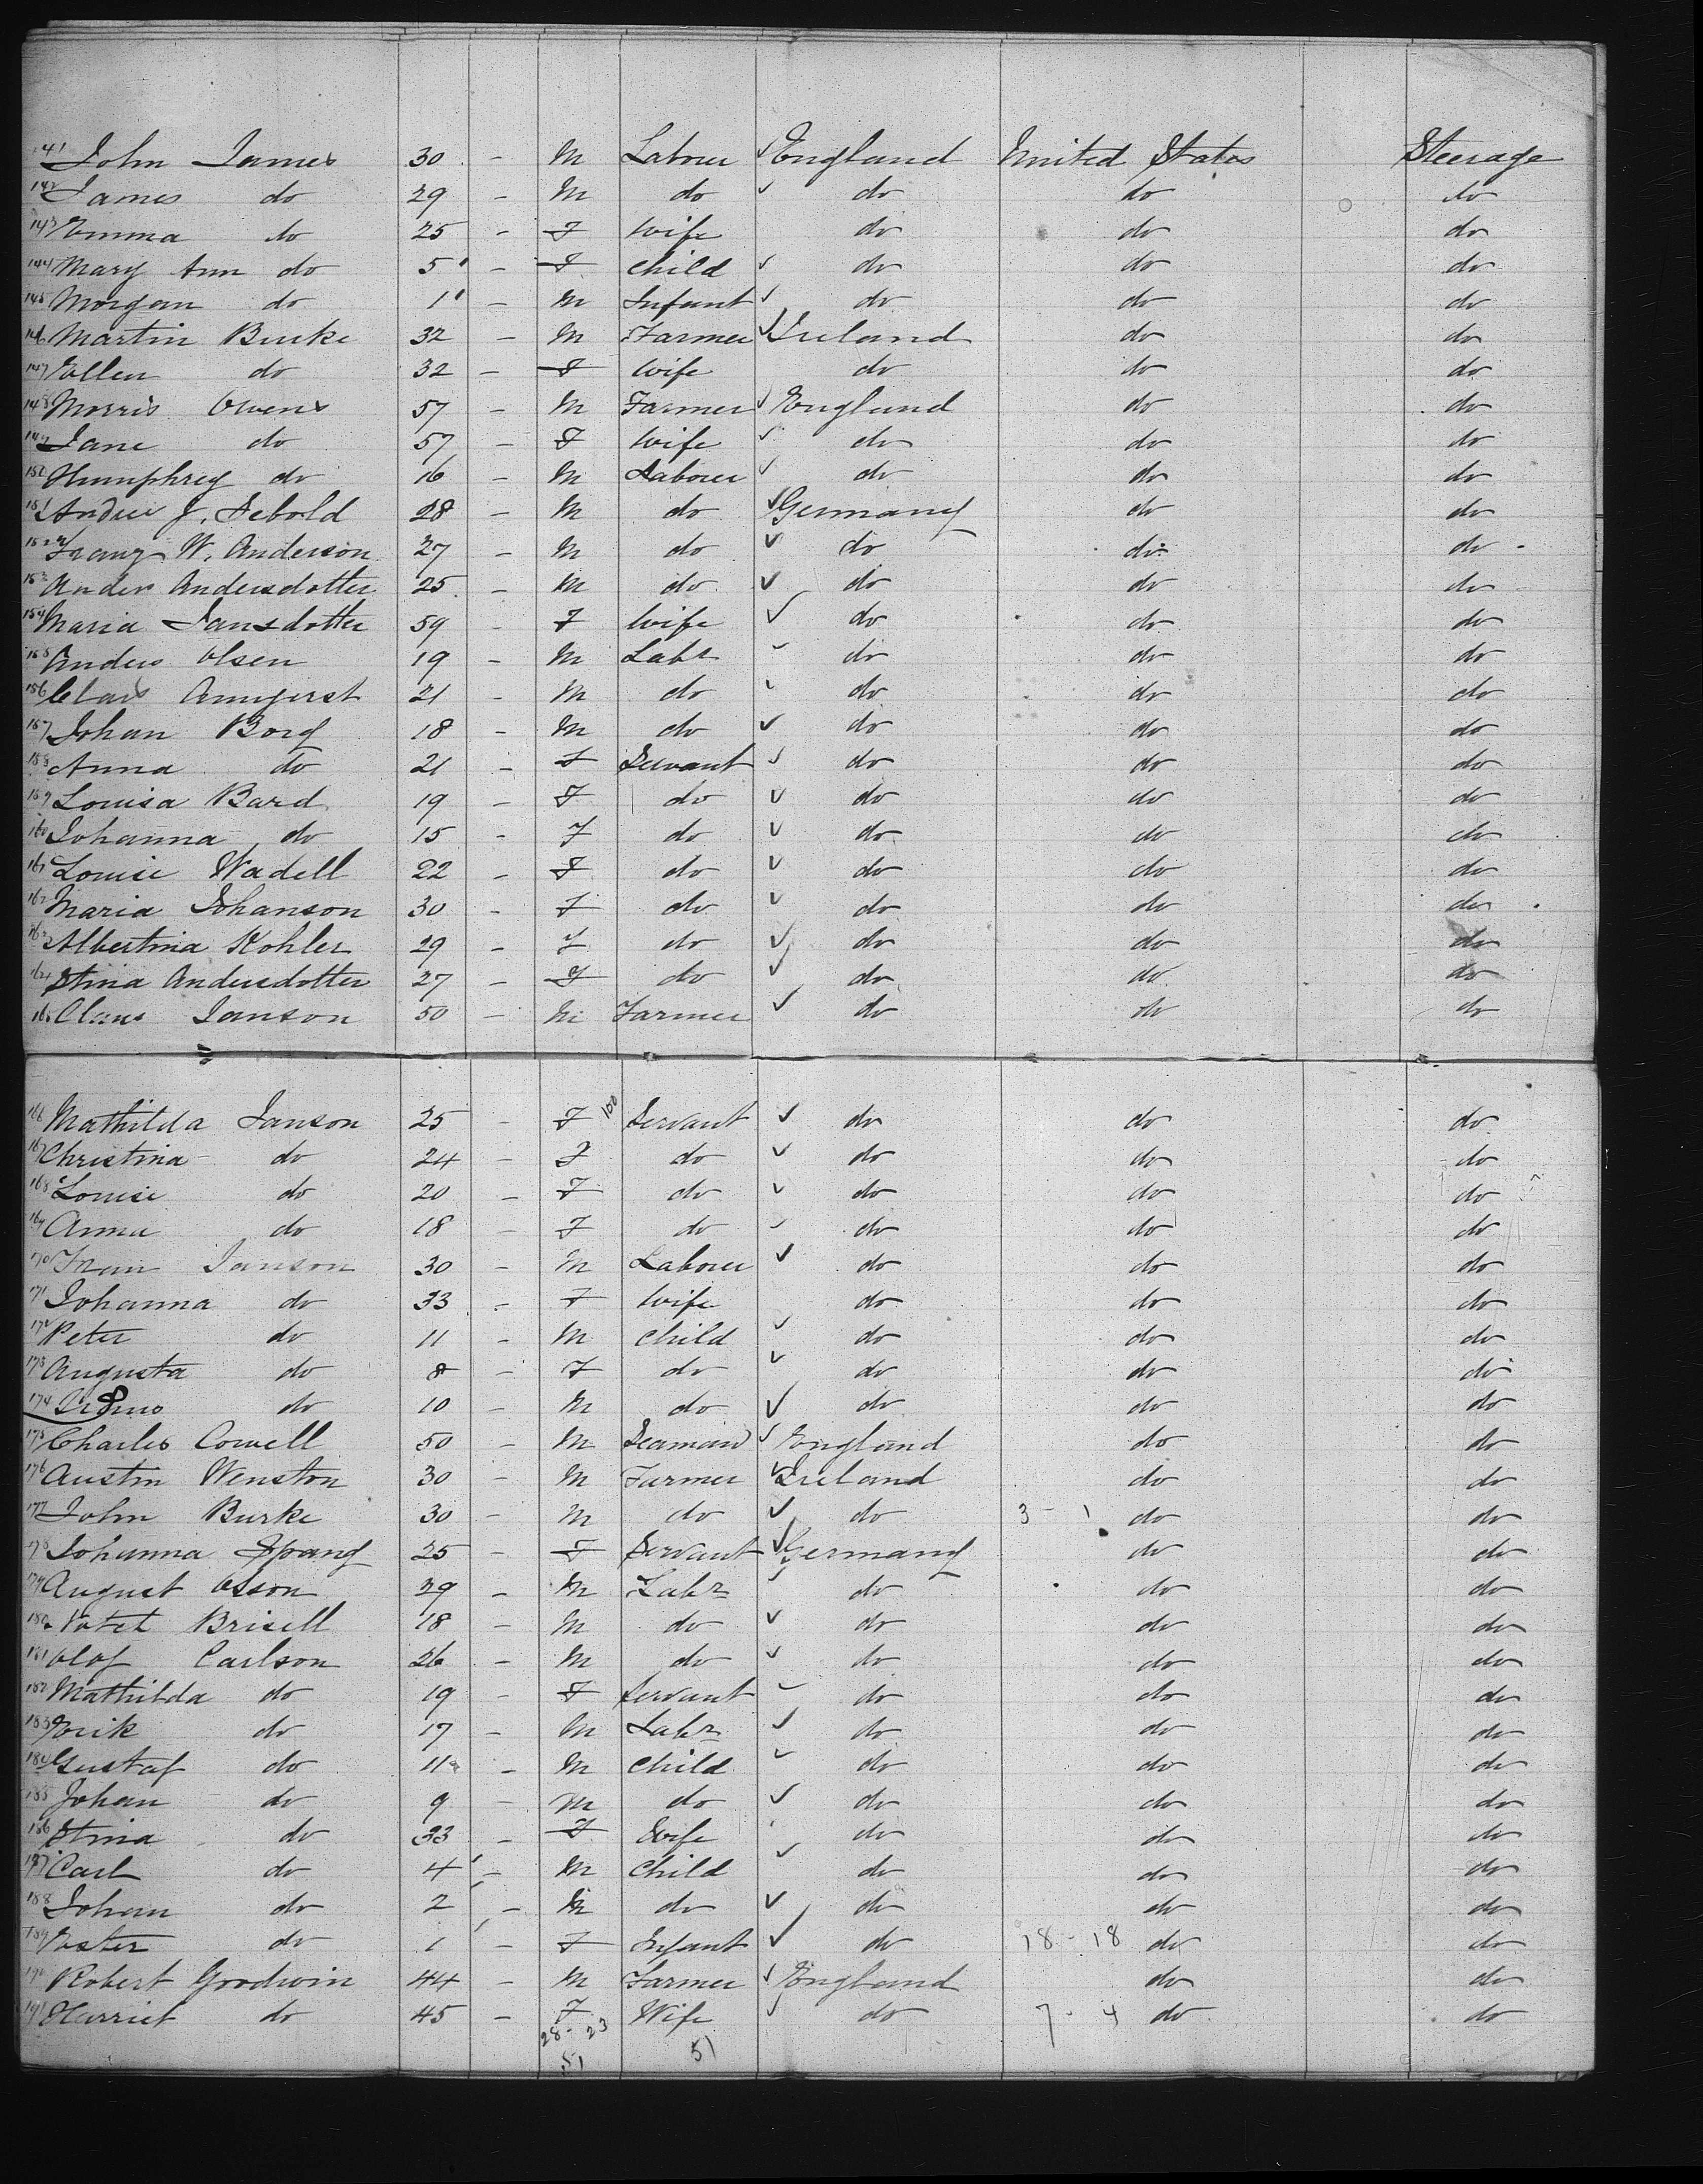 141 John James 30 - M Labour ✓ England United States Steerage
142 James do 29 - M do ✓ do do do
143 Emma do 25 - F wife do do do
144 Mary Ann do 5 - F child ✓ do do do
145 Morgan do 1 - M Infant ✓ do do do
146 Martin Burke 32 - M Farmer ✓ Ireland do do
147 Ellen do 32 - F wife do do do
148 Morris Owens 57 - M Farmer ✓ England do do
149 Jane do 57 - F wife ✓ do do do
150 Humphrey do 16 - M Laborer ✓ do do do
151 J. Sebold 28 - M do ✓ Germany do do
152 Franz W. Anderson 27 - M do ✓ do do do
153 Anders Andersdotter 25 - M do ✓ do do do
154 Maria Jansdotter 59 - F wife ✓ do do do
155 Anders Olsen 19 - M Labr ✓ do do do
156 Clars 21 - M do ✓ do do do
157 Johan Borg 18 - M do ✓ do do do
158 Anna do 21 - F Servant ✓ do do do
159 Louisa Bard 19 - F do ✓ do do do
160 Johanna do 15 - F do ✓ do do do
161 Louise Wadell 22 - F do ✓ do do do
162 Maria Johanson 30 - F do ✓ do do do
163 Albertina Kohler 29 - F do ✓ do do do
164 Stina Andersdotter 27 - F do ✓ do do do
165 Claus Janson 50 - M Farmer ✓ do do do
166 Mathilda Janson 25 - F 100 Servant ✓ do do do
167 Christina do 24 - F do ✓ do do do
168 Louise do 20 - F do ✓ do do do
169 Anna do 18 - F do ✓ do do do
170 Janson 30 - M Laborer ✓ do do do
171 Johanna do 33 - F wife do do do
172 Peter do 11 - M child ✓ do do do
173 Augusta do 8 - F do ✓ do do do
174 do 10 - M do ✓ do do do
175 Charles Cowell 50 - M Seaman ✓ England do do
176 Austin Wenston 30 - M Farmer ✓ Ireland do do
177 John Burke 30 - M do ✓ do 3 - 1 do do
178 Johanna Spang 25 - F Servant ✓ Germany do do
179 August Osson 29 - M Labr ✓ do do do
180 Brisell 18 - M do ✓ do do do
181 Olof Carlson 26 - M do ✓ do do do
182 Mathilda do 19 - F Servant ✓ do do do
183 Erik do 17 - M Labr ✓ do do do
184 Gustaf do 11 - M child ✓ do do do
185 Johan do 9 - M do ✓ do do do
186 Stina do 33 - F Wife do do do
187 Carl do 4 - M child ✓ do do do
188 Johan do 2 - M do ✓ do do do
189 Ester do 1 - F Infant ✓ do 18 - 18 do do
190 Robert Goodwin 44 - M Farmer ✓ England do do
191 Harriet do 45 - F Wife ✓ do 7 - 4 do do
28 - 23
51 51